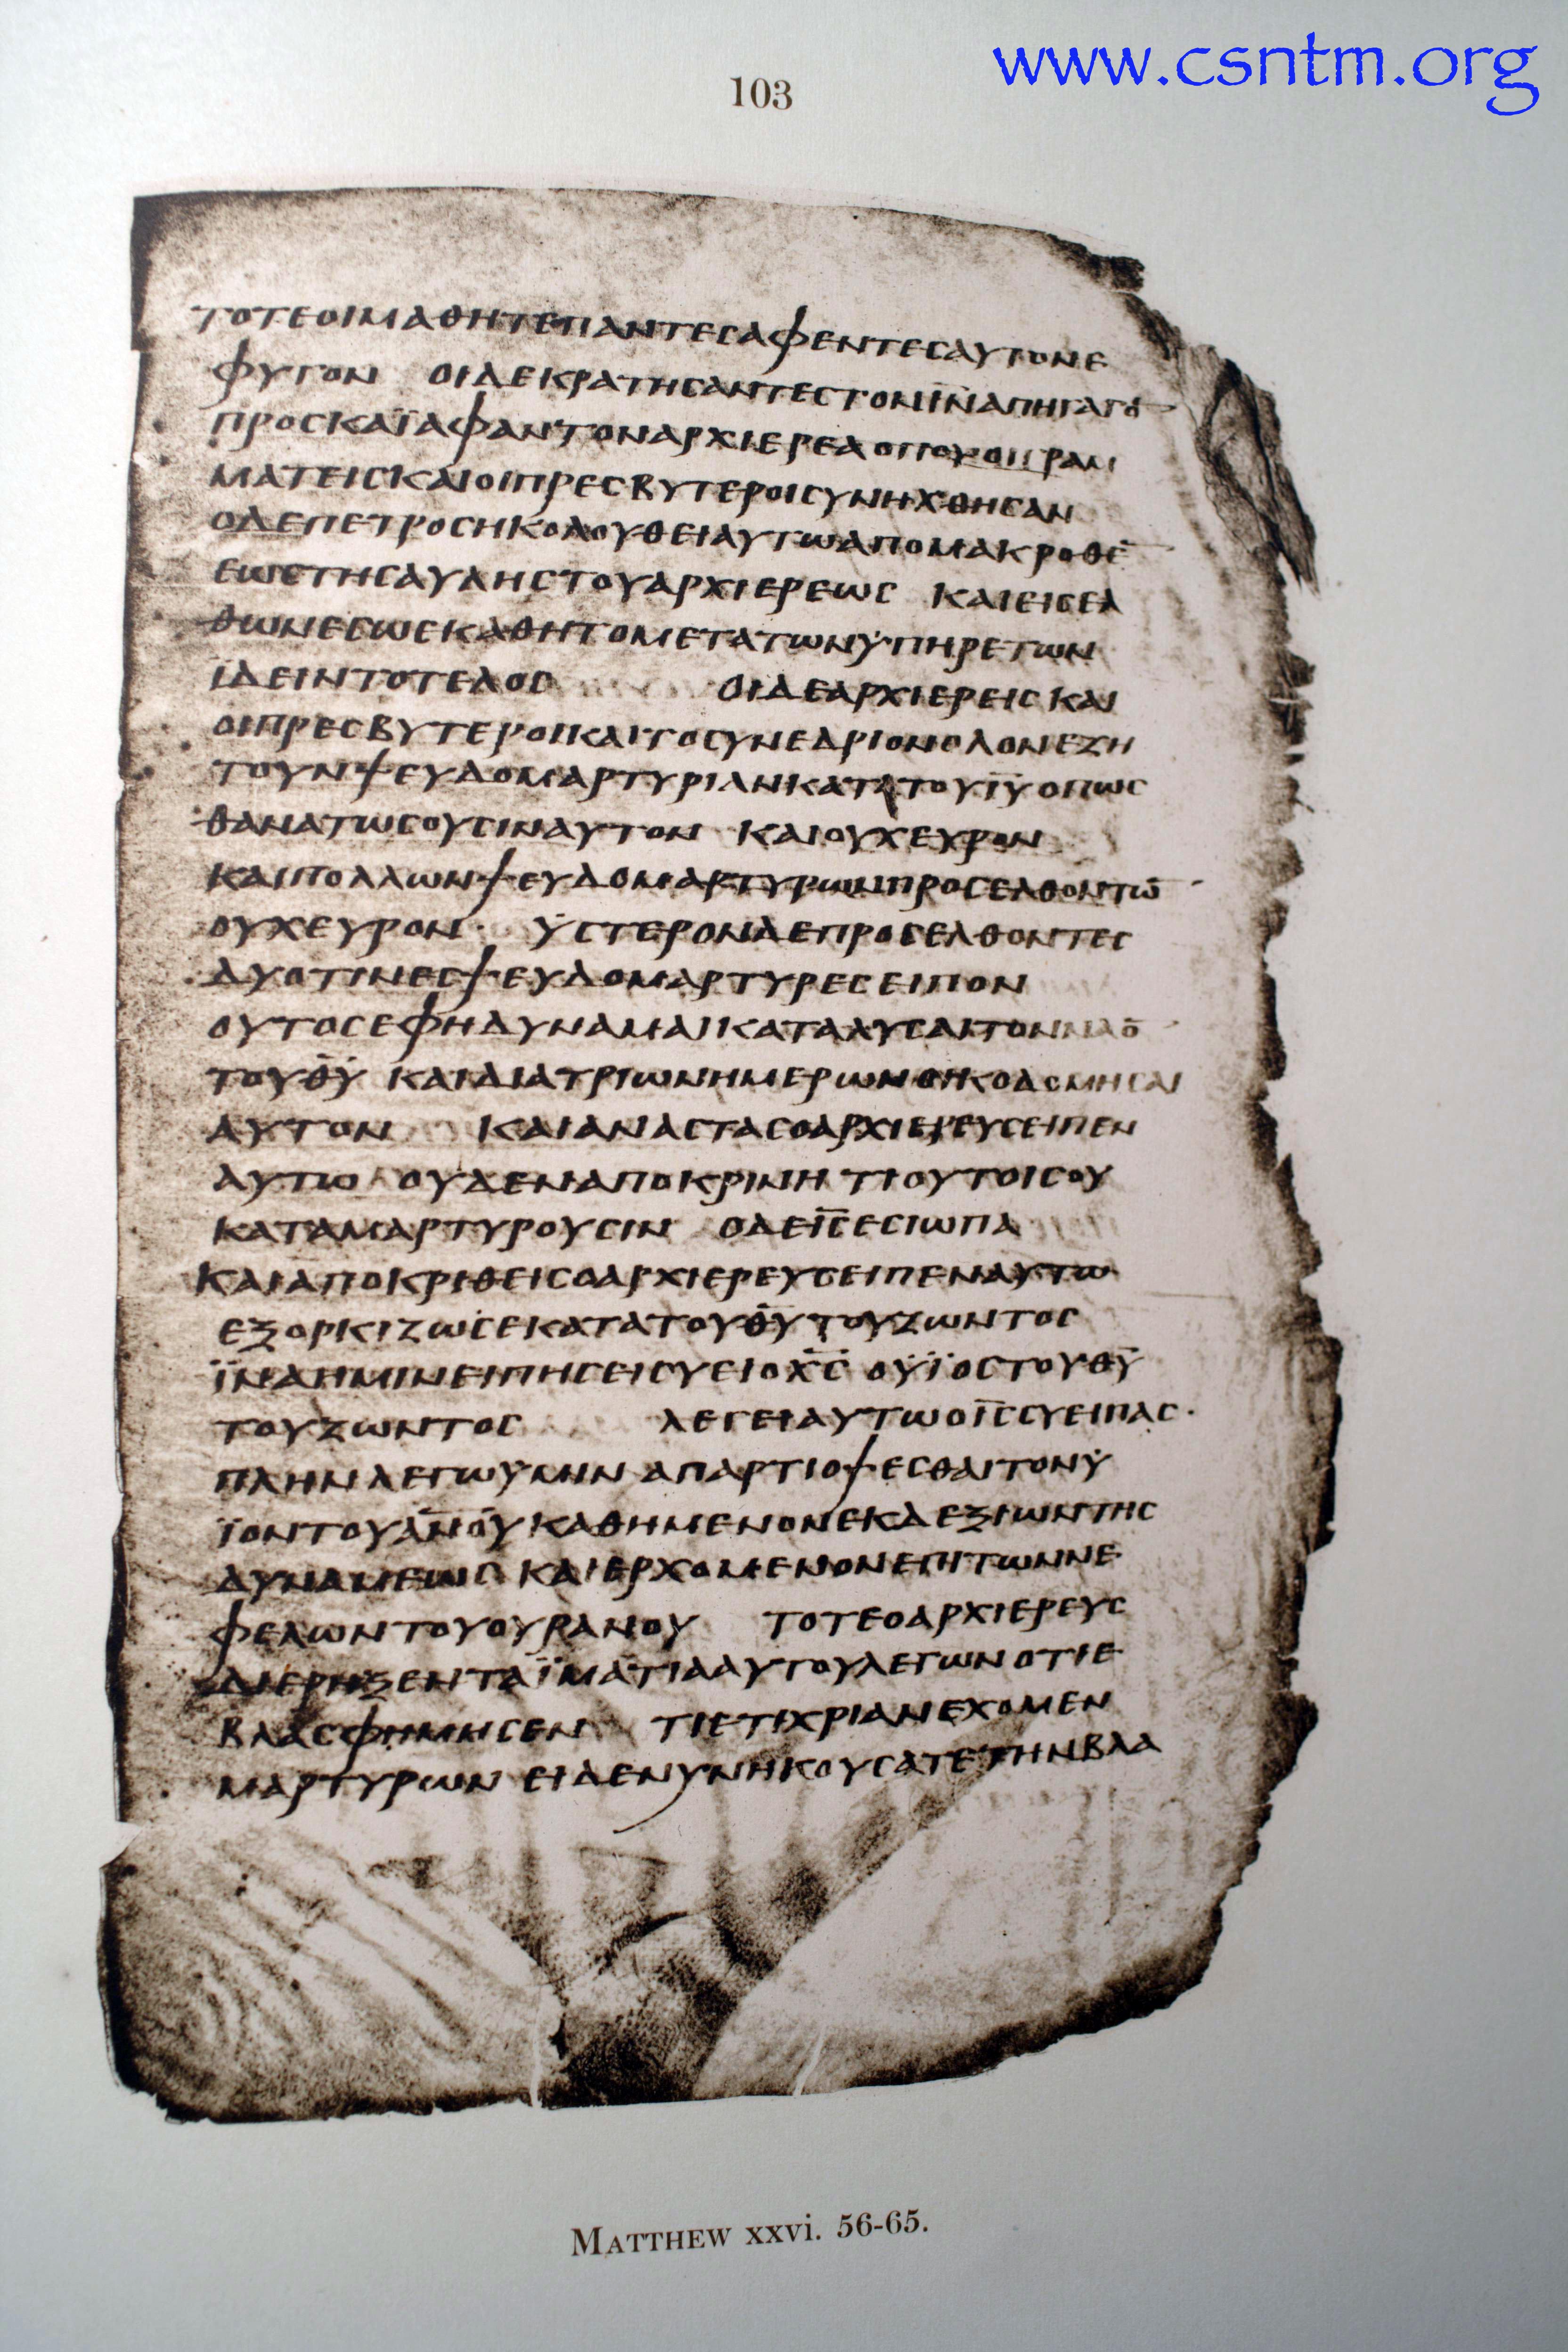 www.csntm.org
103
ΤΟΤΕΟΙΜΑΘΗΤΕΠΑΝΤΕСΑΦΕΝΤΕСΑΥΤΟΝΕ
ΦΥΓΟΝ ΟΙΔΕΚΡΑΤΗСΑΝΤΕСΤΟΝΙ̅Ν̅ΑΠΗΓΑΓΟ̅
ΠΡΟСΚΑΪΑΦΑΝΤΟΝΑΡΧΙΕΡΕΑΟΠΟΥΟΙΓΡΑΜ
ΜΑΤΕΙСΚΑΙΟΙΠΡΕСΒΥΤΕΡΟΙСΥΝΗΧΘΗСΑΝ
ΟΔΕΠΕΤΡΟСΗΚΟΛΟΥΘΕΙΑΥΤΩΑΠΟΜΑΚΡΟΘΕ̅
ΕΩСΤΗСΑΥΛΗСΤΟΥΑΡΧΙΕΡΕΩС ΚΑΙΕΙСΕΛ
ΘΩΝΕСΩΕΚΑΘΗΤΟΜΕΤΑΤΩΝΫΠΗΡΕΤΩΝ
ΪΔΕΙΝΤΟΤΕΛΟС ΟΙΔΕΑΡΧΙΕΡΕΙСΚΑΙ
ΟΙΠΡΕСΒΥΤΕΡΟΙΚΑΙΤΟСΥΝΕΔΡΙΟΝΟΛΟΝΕΖΗ
ΤΟΥΝΨΕΥΔΟΜΑΡΤΥΡΙΑΝΚΑΤΑΤΟΥΙ̅Υ̅ΟΠΩС
ΘΑΝΑΤΩСΟΥСΙΝΑΥΤΟΝ ΚΑΙΟΥΧΕΥΡΟΝ
ΚΑΙΠΟΛΛΩΝΨΕΥΔΟΜΑΡΤΥΡΩΝΠΡΟСΕΛΘΟΝΤΩ̅
ΟΥΧΕΥΡΟΝ· ΫСΤΕΡΟΝΔΕΠΡΟСΕΛΘΟΝΤΕС
ΔΥΟΤΙΝΕСΨΕΥΔΟΜΑΡΤΥΡΕСΕΙΠΟΝ
ΟΥΤΟСΕΦΗΔΥΝΑΜΑΙΚΑΤΑΛΥСΑΙΤΟΝΝΑΟ̅
ΤΟΥΘ̅Υ̅ ΚΑΙΔΙΑΤΡΙΩΝΗΜΕΡΩΝΟΙΚΟΔΟΜΗСΑΙ
ΑΥΤΟΝ ΚΑΙΑΝΑСΤΑСΟΑΡΧΙΕΡΕΥСΕΙΠΕΝ
ΑΥΤΩ ΟΥΔΕΝΑΠΟΚΡΙΝΗ ΤΙΟΥΤΟΙСΟΥ
ΚΑΤΑΜΑΡΤΥΡΟΥСΙΝ ΟΔΕΙ̅С̅ΕСΙΩΠΑ
ΚΑΙΑΠΟΚΡΙΘΕΙСΟΑΡΧΙΕΡΕΥСΕΙΠΕΝΑΥΤΩ
ΕΞΟΡΚΙΖΩСΕΚΑΤΑΤΟΥΘ̅Υ̅ΤΟΥΖΩΝΤΟС
ΪΝΑΗΜΙΝΕΙΠΗСΕΙСΥΕΙΟΧ̅С̅ ΟΫΪΟСΤΟΥΘ̅Υ̅
ΤΟΥΖΩΝΤΟС ΛΕΓΕΙΑΥΤΩΟΙ̅С̅СΥΕΙΠΑС·
ΠΛΗΝΛΕΓΩΫΜΙΝ ΑΠΑΡΤΙΟΨΕСΘΑΙΤΟΝΫ
ΪΟΝΤΟΥΑ̅Ν̅Ο̅Υ̅ΚΑΘΗΜΕΝΟΝΕΚΔΕΞΙΩΝΤΗС
ΔΥΝΑΜΕΩС ΚΑΙΕΡΧΟΜΕΝΟΝΕΠΙΤΩΝΝΕ
ΦΕΛΩΝΤΟΥΟΥΡΑΝΟΥ ΤΟΤΕΟΑΡΧΙΕΡΕΥС
ΔΙΕΡΗΞΕΝΤΑΪΜΑΤΙΑΑΥΤΟΥΛΕΓΩΝΟΤΙΕ
ΒΛΑСΦΗΜΗСΕΝ ΤΙΕΤΙΧΡΙΑΝΕΧΟΜΕΝ
ΜΑΡΤΥΡΩΝ ΕΙΔΕΝΥΝΗΚΟΥСΑΤΕΤΗΝΒΛΑ
MATTHEW xxvi. 56-65.